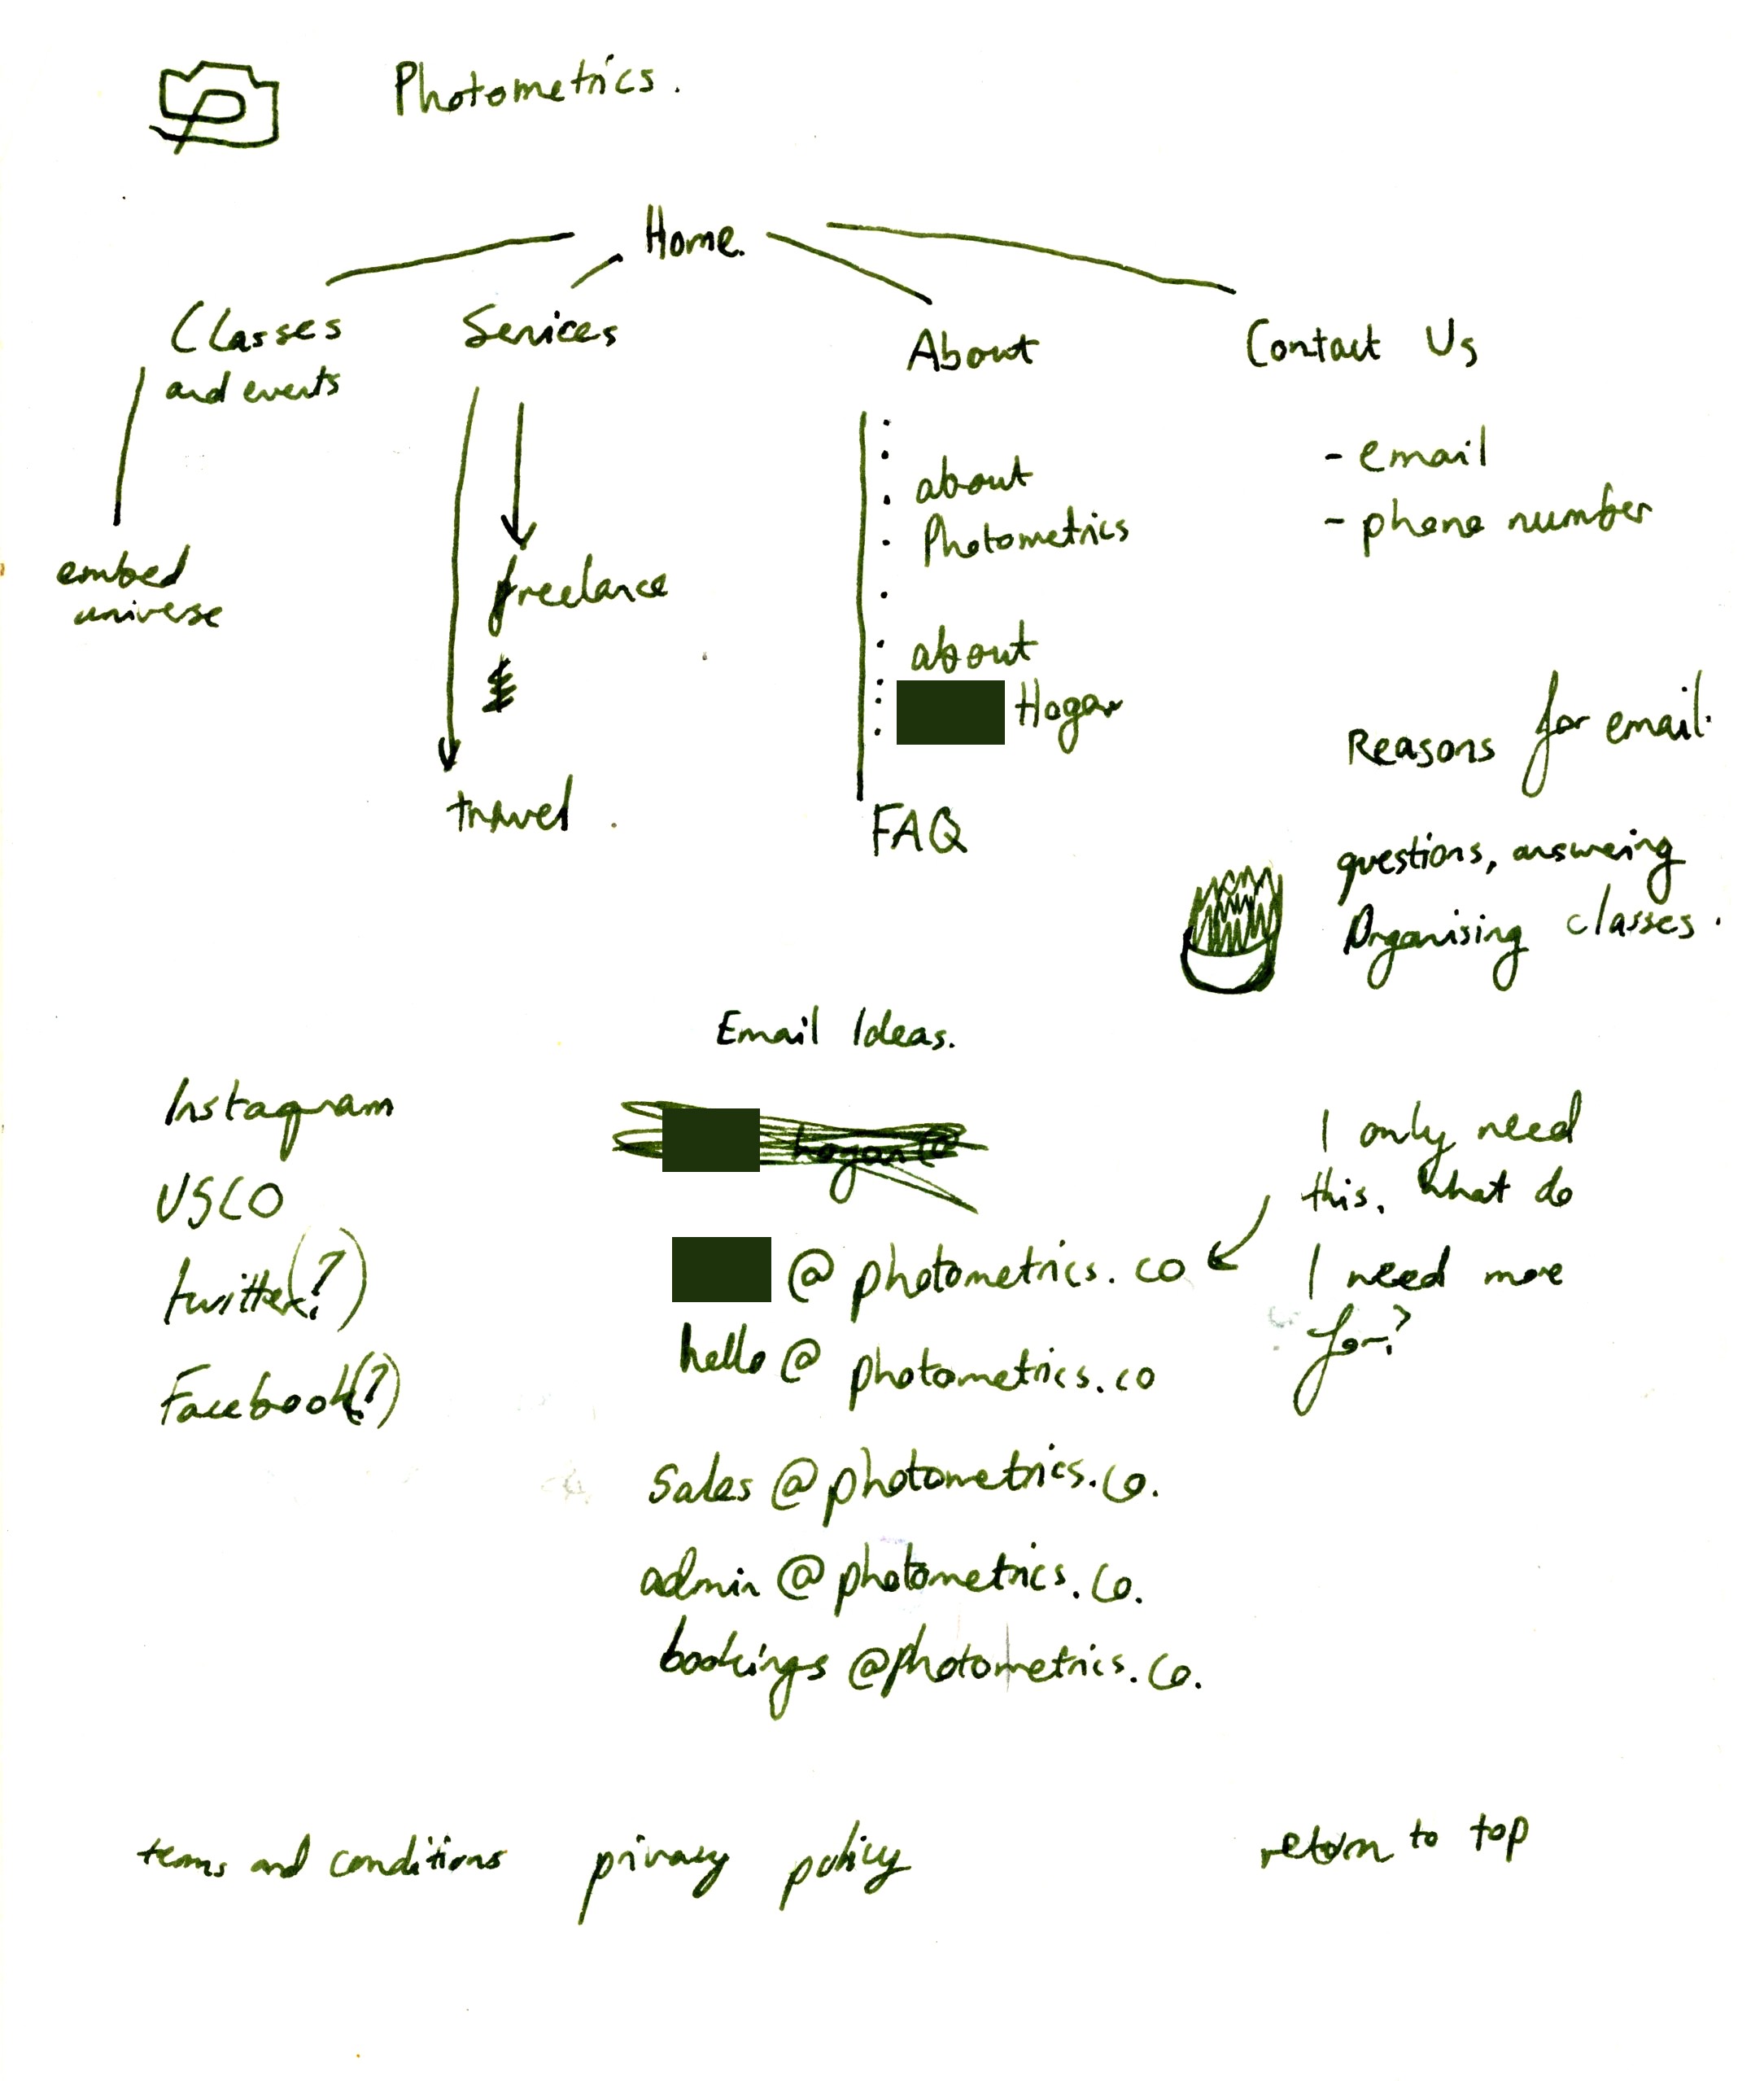 Photometrics.
Home.
Classes
and events
Services
About
Contact Us
embed
universe
freelance
travel.
about
Photometrics
about
Hogan
FAQ
- email
- phone number
Reasons for email:
questions, answering
Organising classes.
Email Ideas.
Instagram
VSCO
twitter(?)
Facebook(?)
hogan@
@photometrics.co
hello@photometrics.co
Sales@photometrics.co.
admin@photometrics.co.
bookings@photometrics.co.
I only need
this. What do
I need more
for?
terms and conditions
privacy policy
return to top